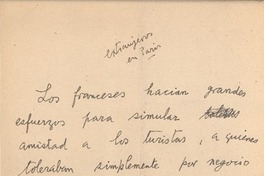 extranjeros
en París
Los franceses hacían grandes
esfuerzos para simular
amistad a los turistas, a quiénes
toleraban simplemente por negocio